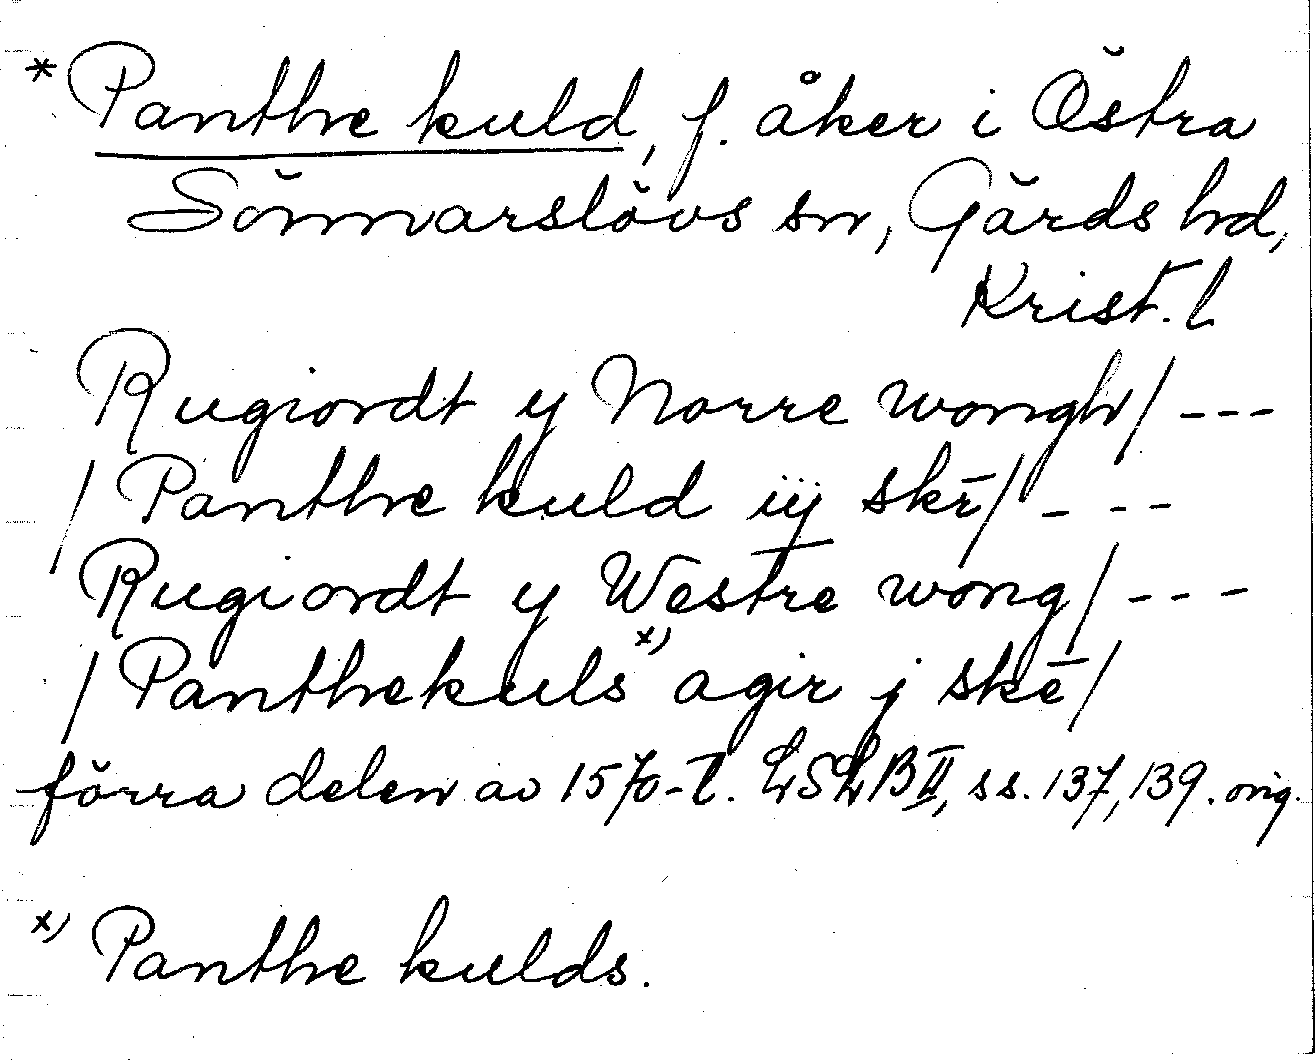 * Panthe kuld, f. åker i Östra
Sönnarslövs sn, Gärds hd,
Krist. l
Rugiordt y Norre wongh/ ---
/ Panthe kuld iij skē/ - - -
Rugiordt y Westre wong/ ---
/ Panthekuls x) agir j skē/
förra delen av 1570-t. LSLB II, ss. 137, 139. orig.
x) Panthe kulds.